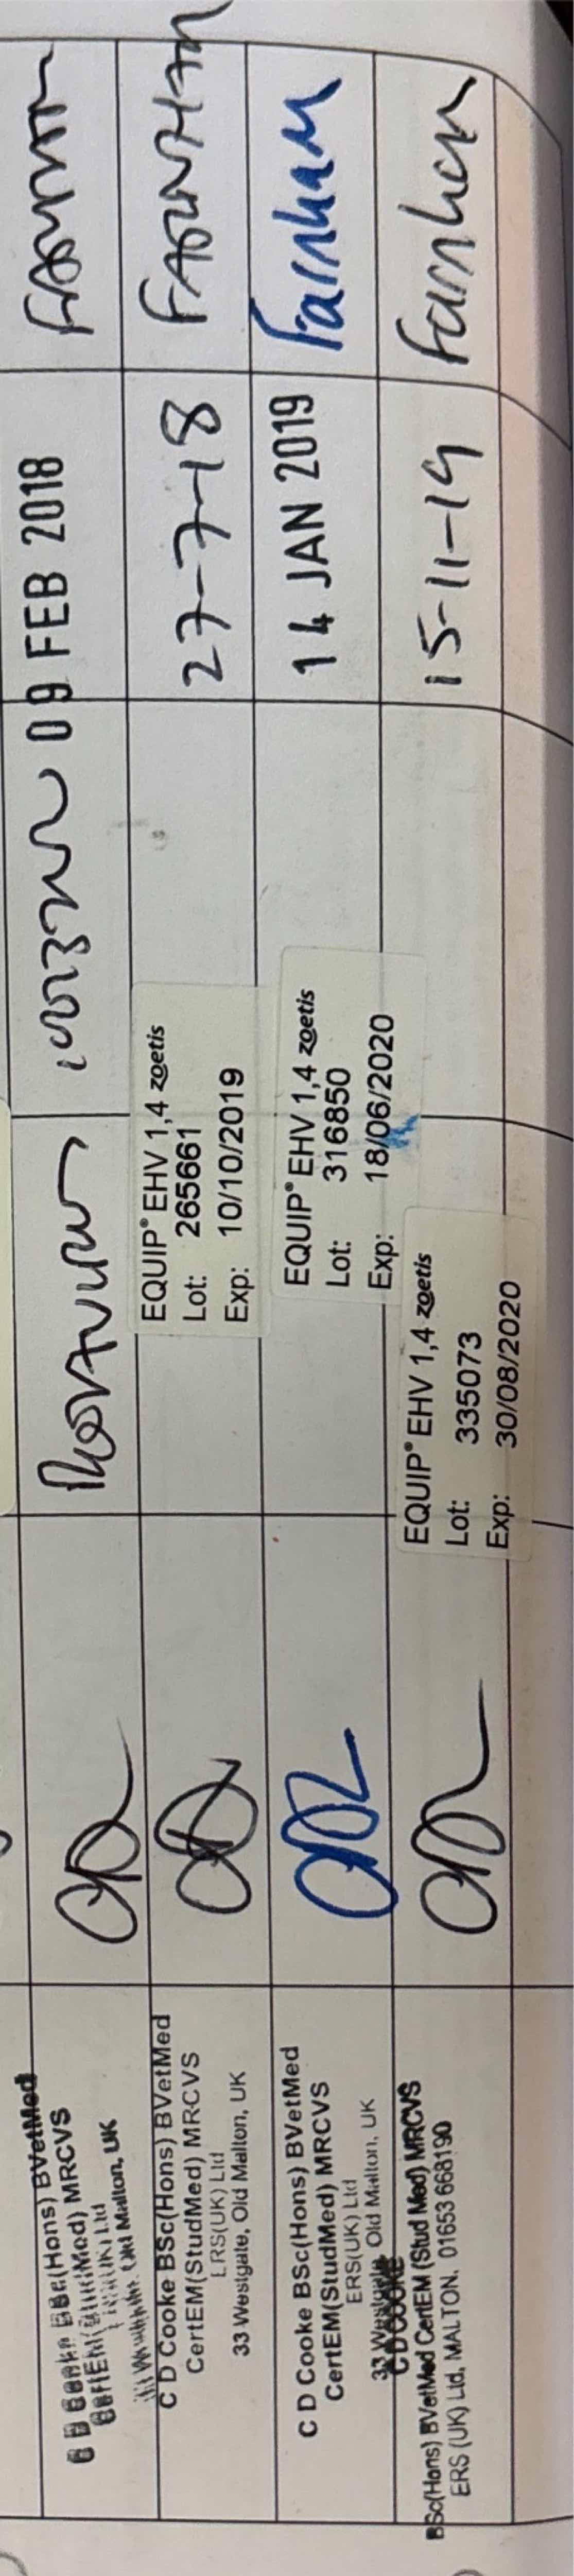 C D Cooke BSc(Hons) BVetMed
CertEM(StudMed) MRCVS
(UK) Ltd
Old Malton, UK
09 FEB 2018
FARNHAM
C D Cooke BSc(Hons) BVetMed
CertEM(StudMed) MRCVS
ERS(UK) Ltd
33 Westgate, Old Malton, UK
EQUIP® EHV 1,4 zoetis
Lot: 265661
Exp: 10/10/2019
27-7-18
FARNHAM
C D Cooke BSc(Hons) BVetMed
CertEM(StudMed) MRCVS
ERS(UK) Ltd
33 Westgate, Old Malton, UK
EQUIP® EHV 1,4 zoetis
Lot: 316850
Exp: 18/06/2020
14 JAN 2019
Farnham
C D COOKE
BSc(Hons) BVetMed CertEM (Stud Med) MRCVS
ERS (UK) Ltd, MALTON. 01653 668190
EQUIP® EHV 1,4 zoetis
Lot: 335073
Exp: 30/08/2020
15-11-19
Farnham